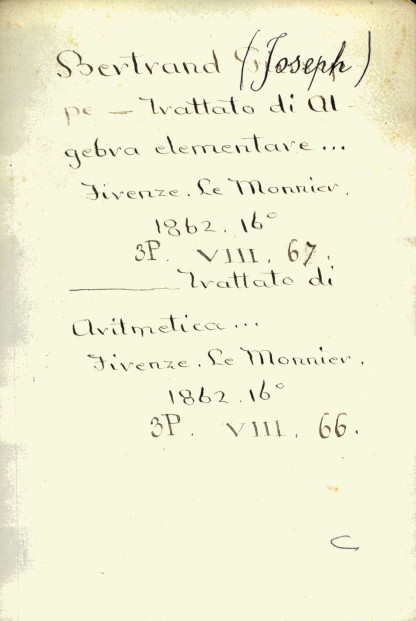 Bertrand (Joseph)
pe — Trattato di Al-
gebra elementare...
Firenze. Le Monnier.
1862. 16°
3P. VIII. 67.
——— Trattato di
Aritmetica...
Firenze. Le Monnier.
1862. 16°
3P. VIII. 66.
C